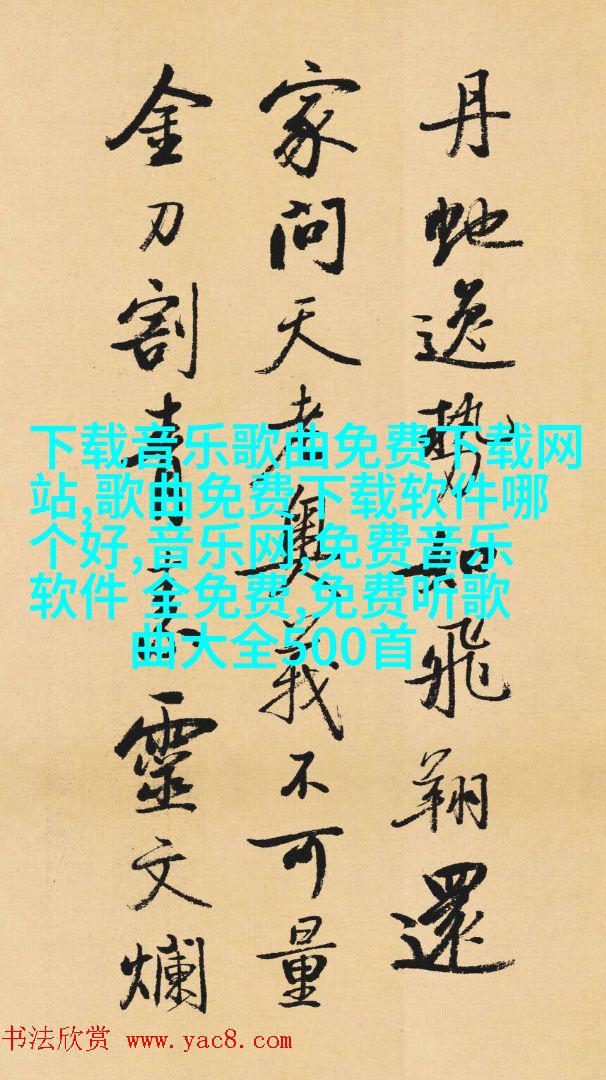 丹虵逸勢如飛翔還
家問天老奧義不可量
金刀割青素靈文爛
下载音乐歌曲免费下载网
站,歌曲免费下载软件哪
个好,音乐网,免费音乐
软件 全免费,免费听歌
曲大全500首
书法欣赏 www.yac8.com